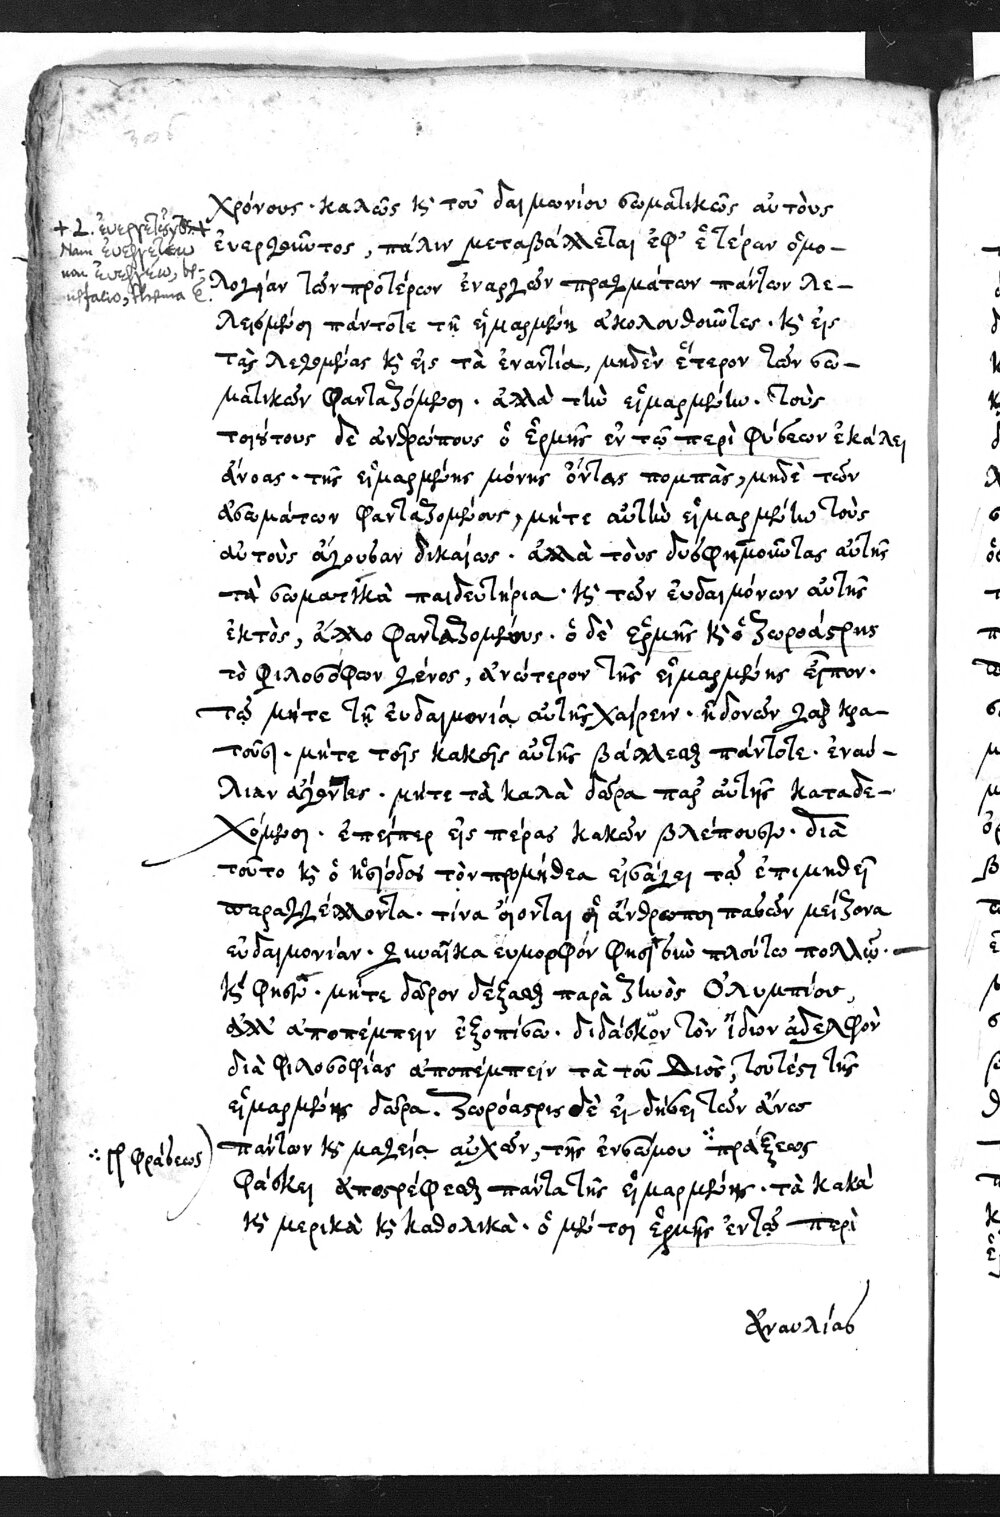 χρόνους· καλῶς κ̀ τοῦ δαιμωνίου σωματικῶς αὐτοὺς
ἐνεργοῦντος, πάλιν μεταβάλλεται ἐφ' ἑτέραν ὁμο-
λογίαν τῶν προτέρων ἐναργῶν πραγμάτων πάντων λε-
λεισμένοι πάντοτε τῇ εἱμαρμένῃ ἀκολουθοῦντες· κ̀ εἰς
τὰς λεγομένας κ̀ εἰς τὰ ἐναντία, μηδὲν ἕτερον τῶν σω-
ματικῶν φανταζόμενοι· ἀλλὰ τὴν εἱμαρμένην· τοὺς
τοιούτους δὲ ἀνθρώπους ὁ ἑρμῆς ἐν τῷ περὶ φύσεων ἐκάλει
ἄνοας· τῆς εἱμαρμένης μόνης ὄντας πομπὰς, μηδὲ τῶν
ἀσωμάτων φανταζομένους, μήτε αὐτὴν εἱμαρμένην τοὺς
αὐτοὺς ἄγουσαν δικαίως· ἀλλὰ τοὺς δυσφημοῦντας αὐτῆς
τὰ σωματικὰ παιδευτήρια· κ̀ τῶν εὐδαιμόνων αὐτῆς
ἐκτὸς, ἄλλο φανταζομένους· ὁ δὲ ἑρμῆς κ̀ ὁ ζωροάστρης
τὸ φιλοσόφων γένος, ἀνώτερον τῆς εἱμαρμένης εἶπον·
τῷ μήτε τῇ εὐδαιμονίᾳ αὐτῆς χαίρειν· ἡδονῶν γὰρ κρα-
τοῦσι· μήτε τοῖς κακοῖς αὐτῆς βάλλεσθαι πάντοτε· ἐναύ-
λιαν ἄγοντες· μήτε τὰ καλὰ δῶρα παρ' αὐτῆς καταδε-
χόμενοι· ἐπείπερ εἰς πέρας κακῶν βλέπουσιν· διὰ
τοῦτο κ̀ ὁ ἡσίοδος τὸν προμηθέα εἰσάγει τῷ ἐπιμηθεῖ
παραγγέλλοντα· τίνα οἴονται οἱ ἄνθρωποι πασῶν μείζονα
εὐδαιμονίαν· γυναῖκα εὔμορφόν φησι σὺν πλούτῳ πολλῷ·
κ̀ φησιν· μήτε δῶρον δέξασθαι παρὰ ζηνὸς Ὀλυμπίου,
ἀλλ' ἀποπέμπειν ἐξοπίσω· διδάσκων τὸν ἴδιον ἀδελφὸν
διὰ φιλοσοφίας ἀποπέμπειν τὰ τοῦ Διὸς, τουτέστι τῆς
εἱμαρμένης δῶρα. Ζωρόαστρις δὲ εἰδήσει τῶν ἄνω
πάντων κ̀ μαγείᾳ αὐχῶν, τῆς ἐνσώμου ⁘ πράξεως
φάσκει ἀποστρέφεσθαι πάντα τῆς εἱμαρμένης· τὰ κακὰ
κ̀ μερικὰ κ̀ καθολικὰ· ὁ μέν τοι ἑρμῆς ἐν τῷ περὶ
ἀναυλίας
+ L. ἐνεργετοῦντος +
Nam ἐνεργετέω
non ἐνεργέω,
thema
⁘ γρ φράσεως